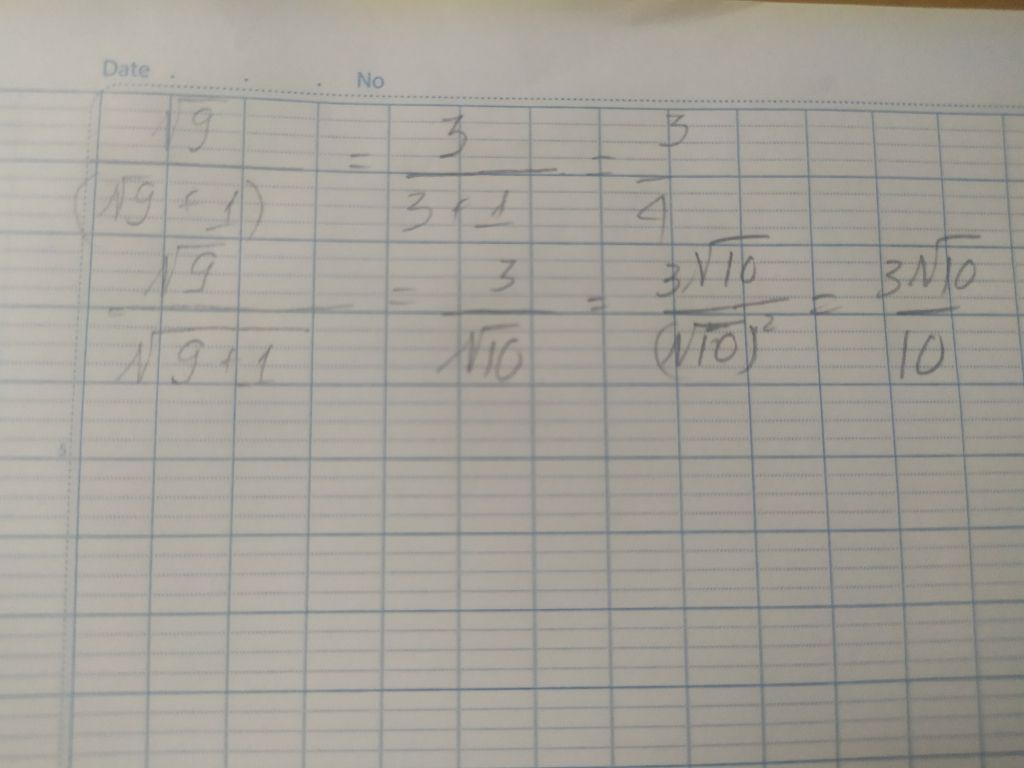 Date . . . No
√9 / (√9 + 1) = 3 / 3 + 1 = 3 / 4
√9 / √9 + 1 = 3 / √10 = 3√10 / (√10)² = 3√10 / 10